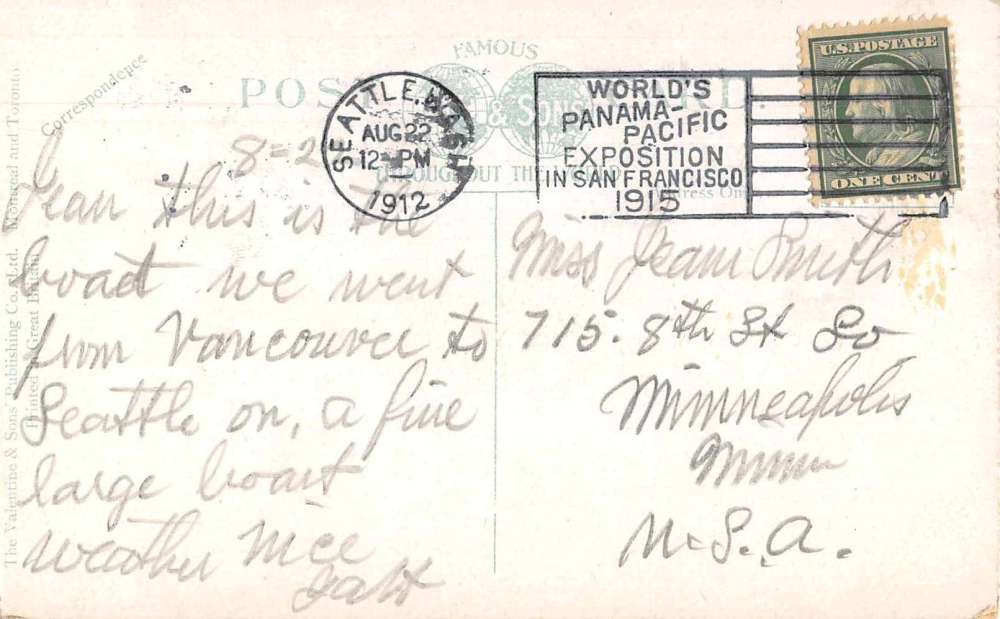 FAMOUS
POST CARD.
& SONS
THROUGHOUT THE WORLD
Correspondence
The Valentine & Sons Publishing Co., Ltd. Montreal and Toronto.
Printed in Great Britain
SEATTLE, WASH.
AUG 22
12 PM
1912
WORLD'S
PANAMA-
PACIFIC
EXPOSITION
IN SAN FRANCISCO
1915
U.S. POSTAGE
ONE CENT
8-2
Jean this is the
boat we went
from Vancouver to
Seattle on, a fine
large boat
weather nice
Miss Jean Smith
715. 8th St So
Minneapolis
Minn
U.S.A.